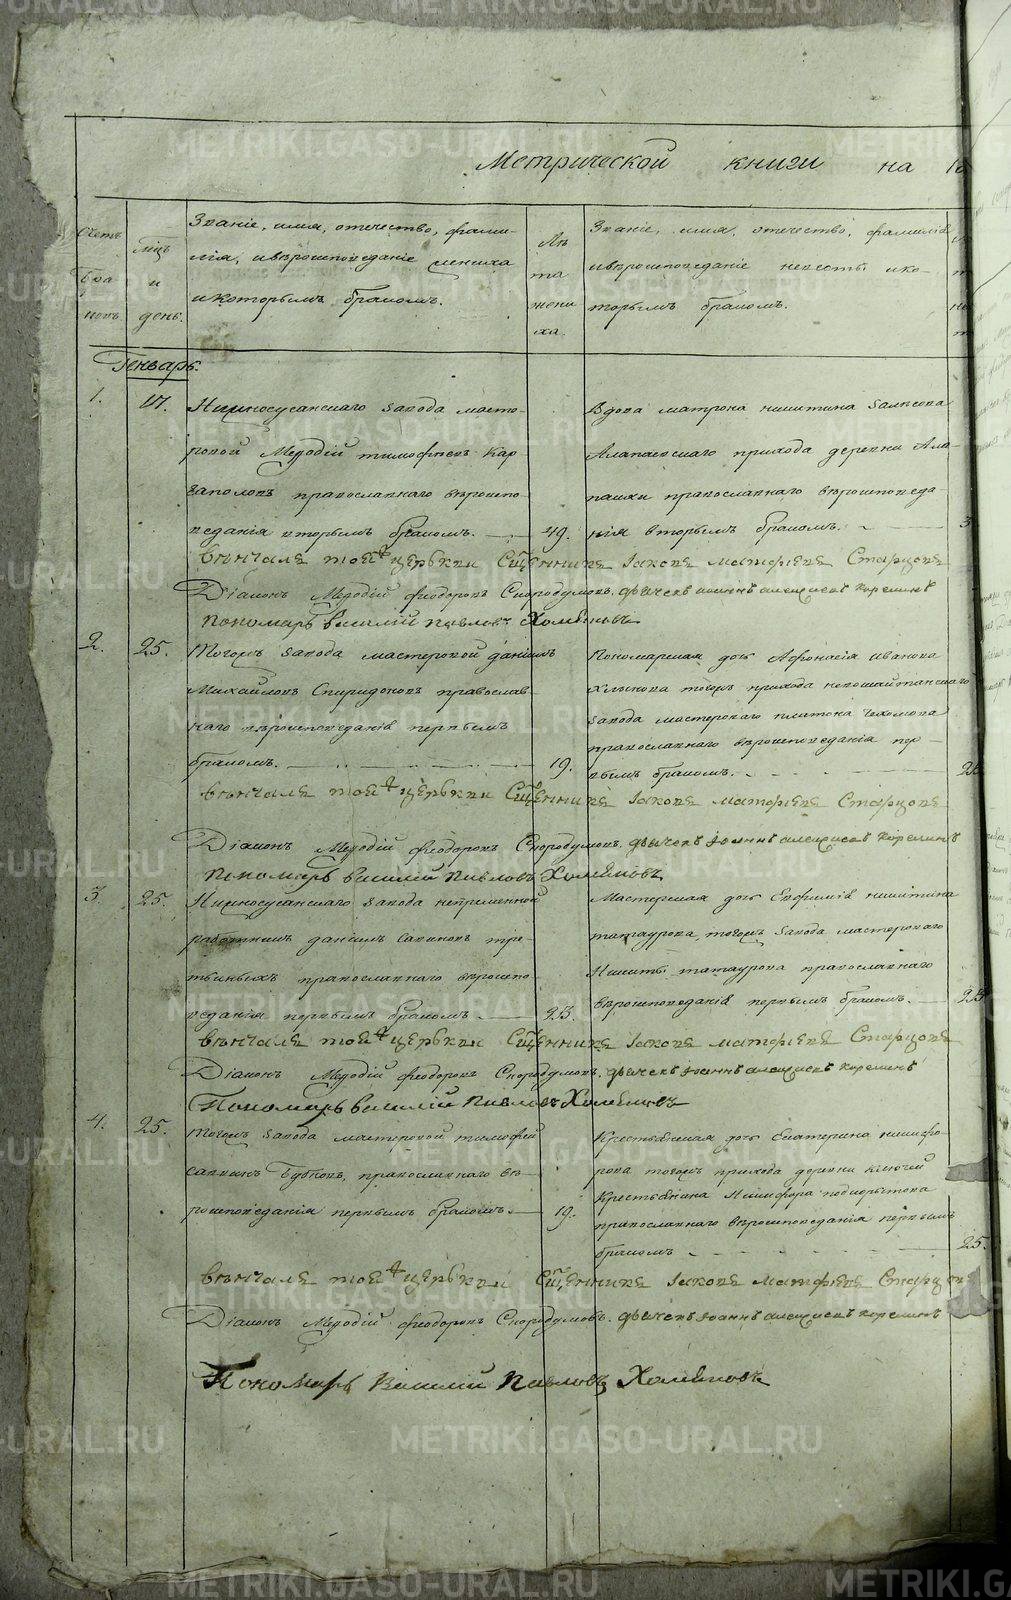 Метрической книги на 18
Счетъ браковъ
мцъ и день.
Званіе, имя, отечество, фамилія, ивѣроисповеданіе жениха икоторымъ бракомъ.
Лѣта жениха.
Званіе, имя, отечество, фамилія ивѣроисповеданіе невесты икоторымъ бракомъ.
Генварь.
1. 17.
Нижносусанскаго завода масте-
ровой Меѳодій тимоѳѣевъ Кар-
гаполовъ православнаго вѣроиспо-
веданія вторымъ бракомъ. 49.
Вдова матрона никитина
Алапаевскаго прихода деревни Ала-
паихи православнаго вѣроисповеда-
нія вторымъ бракомъ. 3
вѣнчалъ тоей церькви Сщенникъ Іаковъ матфѣевъ Старцовъ
Діаконъ Меѳодій ѳеодоровъ Скородумовъ. дьячекъ іоаннъ алексиевъ Корелинъ
пономарь Василій Павловъ Холемовъ
2. 25.
Тогожъ завода мастеровой даніилъ
Михаиловъ Спиридоновъ православ-
наго вѣроисповеданія первымъ
бракомъ. 19.
Пономарская дочь Аѳонасія иванова
тогожъ прихода нейвошайтанскаго
завода мастероваго платона
православнаго вѣроисповеданія пер-
вымъ бракомъ. 25
вѣнчалъ тоей церькви Сщенникъ Іаковъ матфѣевъ Старцовъ
Діаконъ Меѳодій ѳеодоровъ Скородумовъ. дьячекъ Іоаннъ алексиевъ Корелинъ
пономарь Василій Павловъ Холемовъ
3. 25.
Нижносусанскаго завода непременной
работникъ даніилъ савиновъ тре-
тьиныхъ православнаго вѣроиспо-
веданія первымъ бракомъ 23.
Мастерская дочь Евѳимія никитина
татаурова, тогожъ завода мастероваго
Никиты татаурова православнаго
вѣроисповеданія первымъ бракомъ. 23
вѣнчалъ тоей церькви Сщенникъ Іаковъ матфѣевъ Старцовъ
Діаконъ Меѳодій ѳеодоровъ Скородумовъ. дьячекъ Іоаннъ алексиевъ Корелинъ
Пономарь Василій Павловъ Холемовъ
4. 25.
Тогожъ завода мастеровой тимоѳей
саввинъ Бубновъ, православнаго вѣ-
роисповеданія первымъ бракомъ. 19.
Крестьянская дочь Екатерина никифо-
рова тогожъ прихода деревни ключей
Крестьянина Никифора подкорытова
православнаго вѣроисповеданія первымъ
бракомъ 25.
вѣнчалъ тоей церькви Сщенникъ Іаковъ матфѣевъ Старцовъ
Діаконъ Меѳодій ѳеодоровъ Скородумовъ. дьячекъ Іоаннъ алексиевъ Корелинъ
Пономарь Василий Павловъ Холемовъ
METRIKI.GASO-URAL.RU